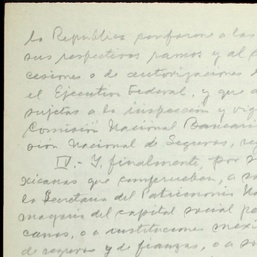 la República conforme a las
sus respectivos ramos y al p
cesiones o de autorizaciones
el Ejecutivo Federal, y que a
sujetas a la inspección y vig
Comisión Nacional Bancari
sión Nacional de Seguros, re
IV.- Y, finalmente, por s
xicanas que comprueben, a s
la Secretaría del Patrimonio Na
mayoría del capital social pe
canos, o a instituciones mexi
de seguros y de fianzas, o a so